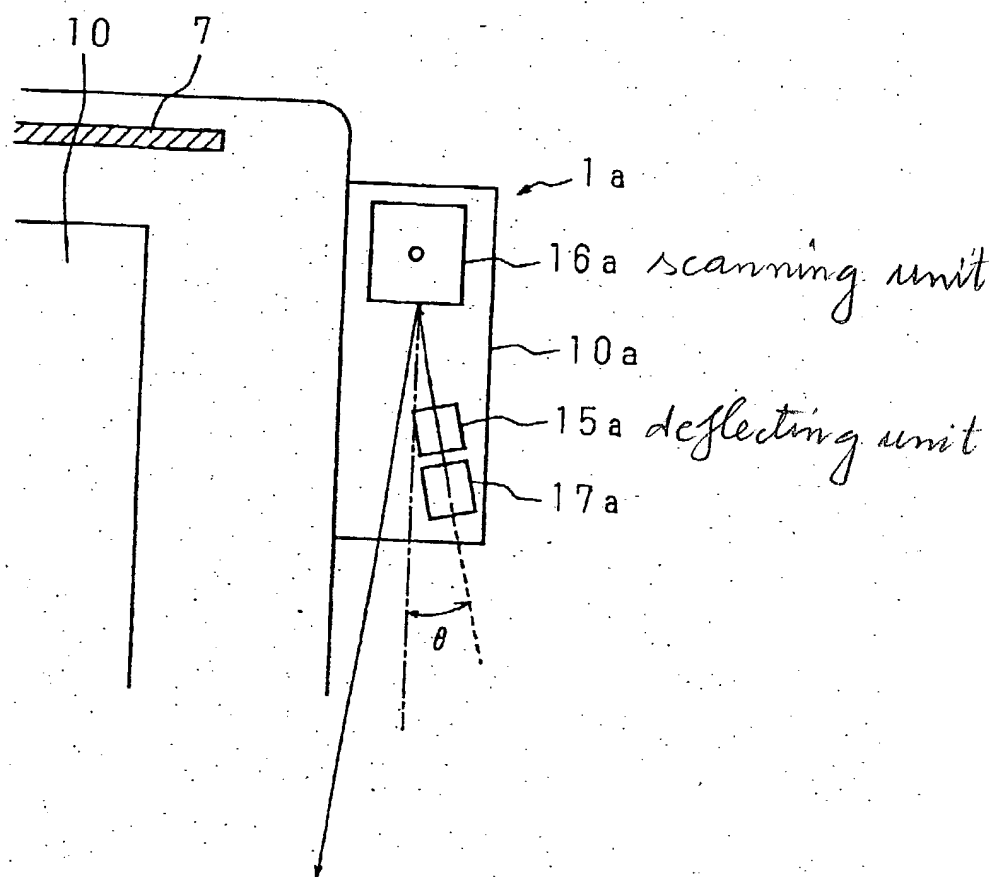 10 7
1a
16a scanning unit
10a
15a deflecting unit
17a
θ